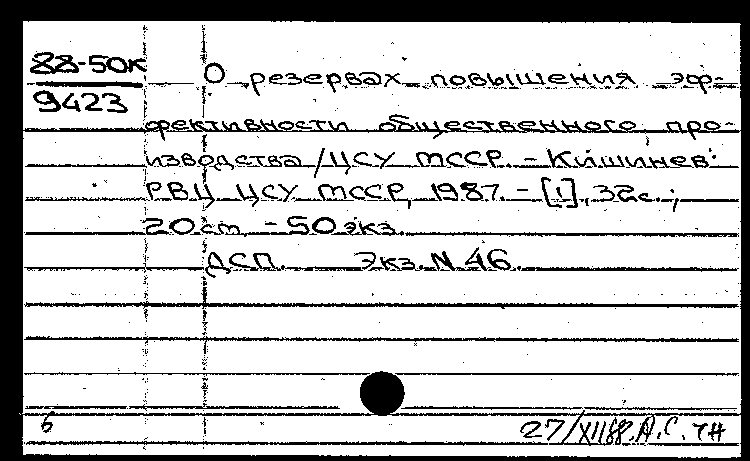 88-50к
9423
О резервах повышения эф-
фективности общественного про-
изводства / ЦСУ МССР. - Кишинев:
РВЦ ЦСУ МССР, 1987. - [1], 32с.;
20 см. - 50 экз.
ДСП. Экз. N 46.
6
27/XII88. А.С. ЧН